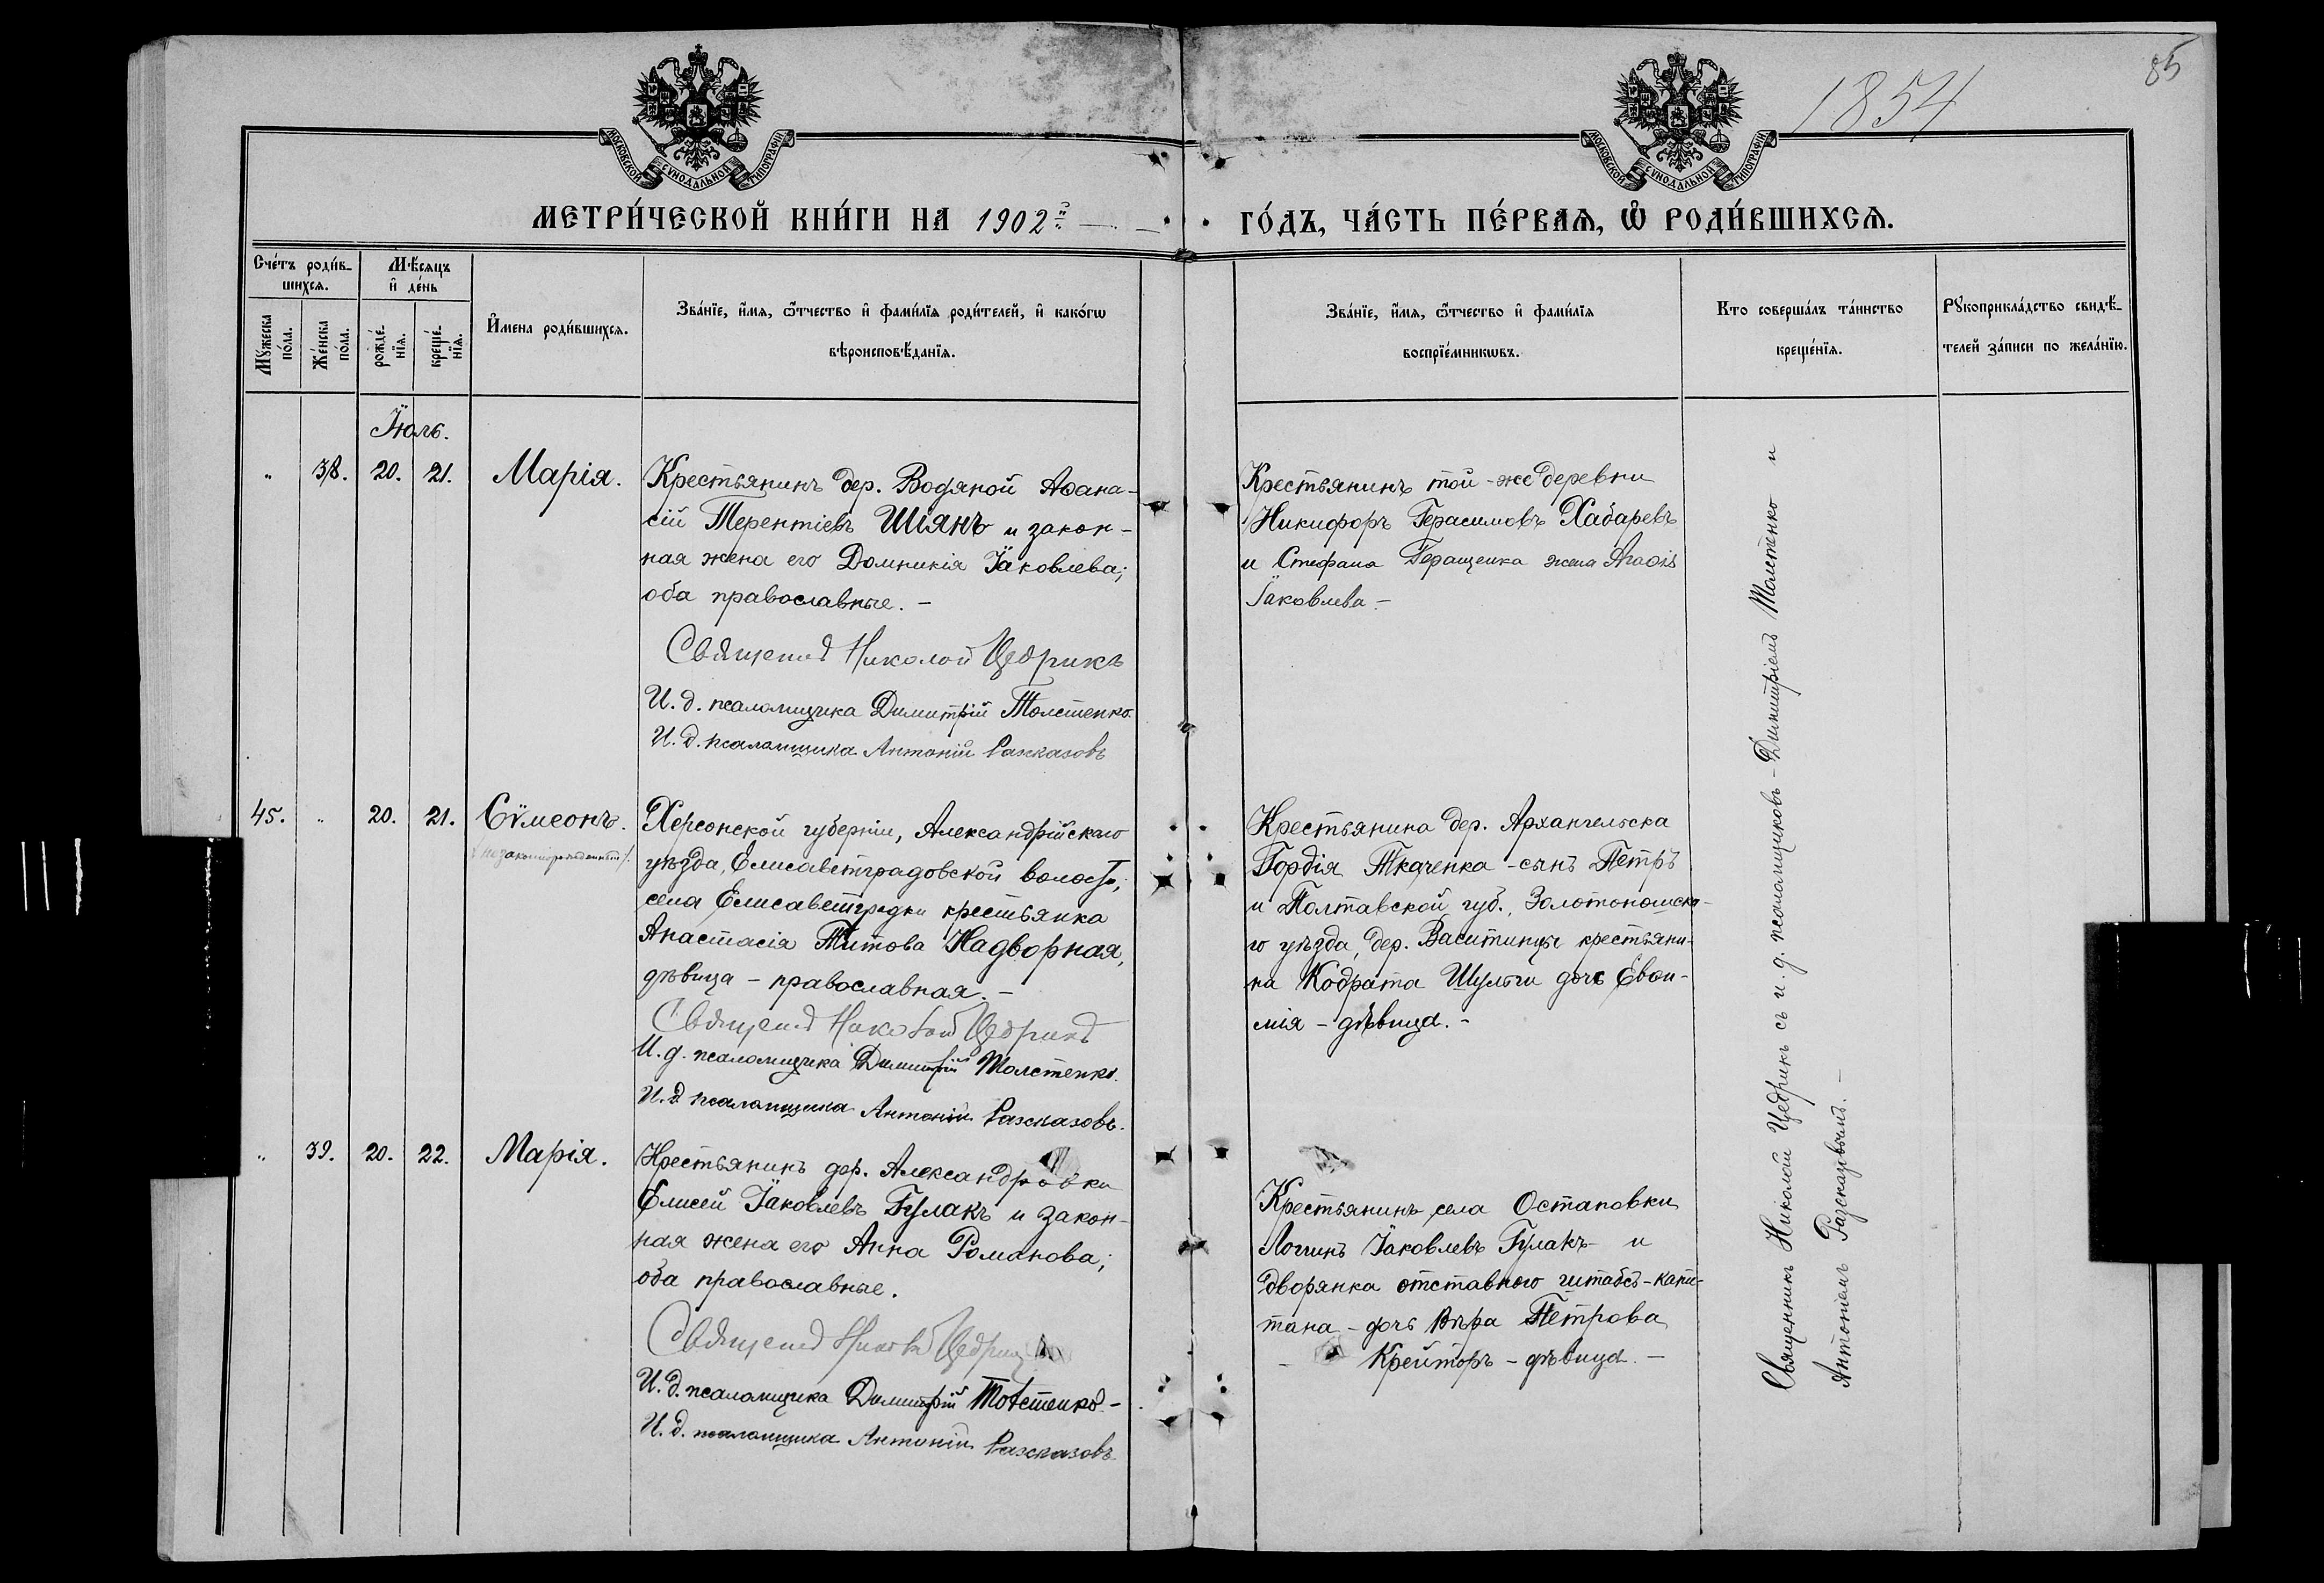 85
1854
МОСКОВСКОЙ СѴНОДАЛЬНОЙ ТИПОГРАФІИ
МОСКОВСКОЙ СѴНОДАЛЬНОЙ ТИПОГРАФІИ
МЕТРИ́ЧЕСКОЙ КНИ́ГИ НА 1902й
ГО́ДЪ, ЧА́СТЬ ПЕ́РВАѦ, Ѡ҆ РОДИ́ВШИХСѦ.
Сче́тъ роди́в-
шихсѧ.
Мѣ́сѧцъ
и҆ де́нь
Мꙋ́жеска
по́ла.
Же́нска
по́ла.
рожде́-
нїѧ.
креще́-
нїѧ.
И҆мена роди́вшихсѧ.
Зва́нїе, и҆́мѧ, ѻ҆́тчество и҆ фами́лїѧ роди́телей, и҆ како́гѡ
вѣроисповѣ́данїѧ.
Зва́нїе, и҆́мѧ, ѻ҆́тчество и҆ фами́лїѧ
воспрїе́мникѡвъ.
Кто соверша́лъ та́инство
креще́нїѧ.
Рꙋкоприкла́дство свидѣ́-
телей за́писи по жела́нїю.
Іюль.
„ 38. 20. 21. Марія.
Крестьянинъ дер. Водяной Аѳана-
сій Терентіевъ Шіянъ и закон-
ная жена его Домникія Іаковлева;
оба православные. –
Священ Николай Цедрикъ
И. д. псаломщика Димитрій Толстенко.
И. д. псаломщика Антоній Разсказовъ
Крестьянинъ той-же деревни
Никифоръ Герасимовъ Хабаревъ
и Стефана Геращенка жена
Іаковлева –
45. „ 20. 21. Сѵмеонъ.
/незаконнорожденный/.
Херсонской губерніи, Александрійскаго
уѣзда, Елисаветградовской волости,
села Елисаветградки крестьянка
Анастасія Титова Надворная,
дѣвица – православная. –
Священ Николай Цедрикъ
И. д. псаломщика Димитрій Толстенко.
И. д. псаломщика Антоній Разсказовъ.
Крестьянина дер. Архангельска
Гордія Ткаченка – сынъ Петръ
и Полтавской губ., Золотоношска-
го уѣзда, дер. Васютинцы крестьяни-
на Кодрата Шульги дочь Евѳи-
мія – дѣвица. –
„ 39. 20. 22. Марія.
Крестьянинъ дер. Александровки
Елисей Іаковлевъ Гулакъ и закон-
ная жена его Анна Романова;
оба православные.
Священ Николай Цедрик
И. д. псаломщика Димитрій Толстенко –
И. д. псаломщика Антоній Разсказовъ
Крестьянинъ села Остановки
Логинъ Іаковлевъ Гулакъ и
дворянка отставного штабсъ-капи-
тана – дочь Вѣра Петрова
– Крейторъ – дѣвица. –
Священникъ Николай Цедрикъ съ и. д. псаломщиковъ – Димитріемъ Толстенко и
Антоніемъ Разсказовымъ. –